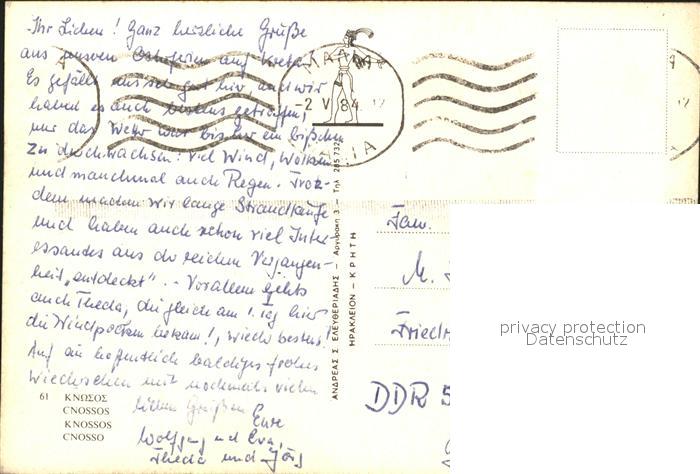 Ihr Lieben! Ganz herzliche Grüße
aus unseren Osterferien auf Kreta!
Es gefällt uns sehr gut hier und wir
haben es auch bestens getroffen,
nur das Wetter war bisher ein bißchen
zu durchwachsen: viel Wind, Wolken
und manchmal auch Regen. Trotz-
dem machen wir lange Strandläufe
und haben auch schon viel Inter-
essantes aus der reichen Vergangen-
heit „entdeckt". - Vor allem gehts
auch Theda, die gleich am 1. Tag hier
die Windpocken bekam!, wieder bestens!
Auf ein hoffentlich baldiges frohes
Wiedersehen mit nochmals vielen
lieben Grüßen Eure
Wolfgang und Eva,
Theda und Jörg
61 ΚΝΩΣΟΣ
CNOSSOS
KNOSSOS
CNOSSO
ΑΝΔΡΕΑΣ Σ. ΕΛΕΥΘΕΡΙΑΔΗΣ — Αργυράκη 3 — Τηλ. 285.732
ΗΡΑΚΛΕΙΟΝ - ΚΡΗΤΗ
-2 V 84 12
Fam.
M.
Friedr
DDR 5
privacy protection
Datenschutz